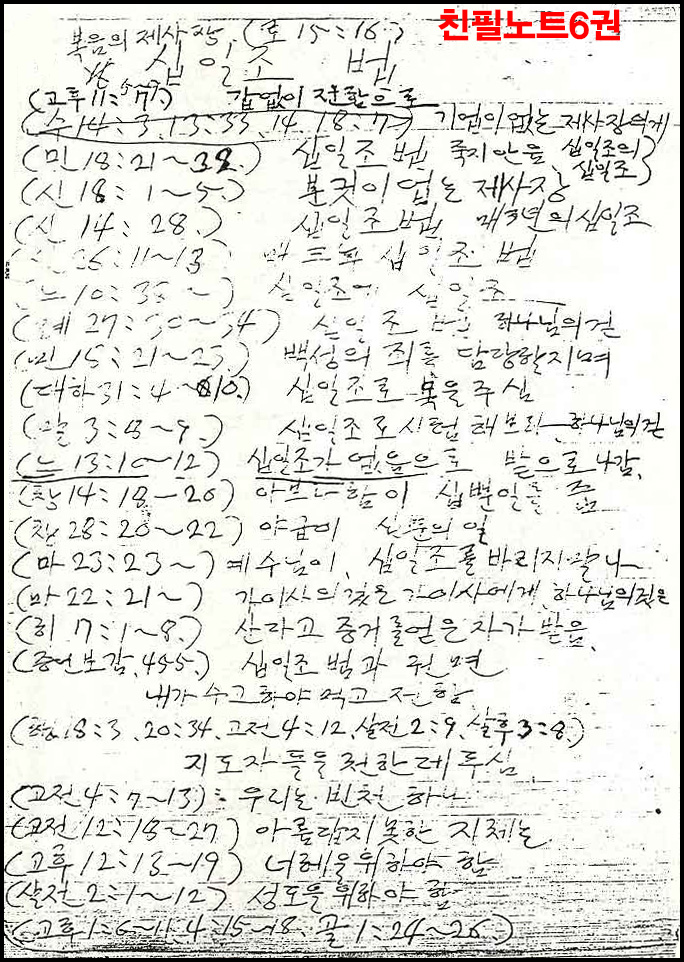 친필노트6권
복음의 제사장, (롬 15:16)
십일조 법
(고후 11:5-7.) 값없이 전함으로
(수 14:3, 13:33, 14, 18:7) 기업이 없는 제사장에게
(민 18:21~32.) 십일조 법 죽지안음, 십일조의 십일조)
(신 18: 1~5.) 분깃이 없는 제사장
(신 14: 28.) 십일조 법 매3년의 십일조
26:11~13 십일조 법
(느 10:38~) 십일조에 십일조
(레 27:30~34) 십일조 법 하나님의 것
(민 15:21~25) 백성의 죄를 담당할지며
(대하 31:4~10.) 십일조로 복을 주심
(말 3:8~9.) 십일조로 시험해보라 하나님의 것
(느 13:10~12) 십일조가 없음으로 밭으로 나감,
(창 14:18-20) 아브라함이 십분일을 줌
(창 28:20~22) 야곱이 십분의 일
(마 23:23~) 예수님이, 십일조를 바리지말나
(마 22:21~) 가이사의 것은 가이사에게, 하나님의 것은
(히 7:1~8.) 산다고 증거를 얻은 자가 받음,
(증언보감, 455.) 십일조 법과 권면
내가 수고하야 먹고 전함
(행 18:3, 20:34, 고전 4:12, 살전 2:9, 살후 3:8.)
지도자들을 천한데 두심
(고전 4:7~13): 우리는 빈천하나
(고전 12:18~27) 아름답지 못한 지체는
(고후 12:13~19) 너헤을 위하야 함
(살전 2:1~12) 성도을 위하야 함
(고후 1:6~11, 4:15~18, 골 1:24~26.)